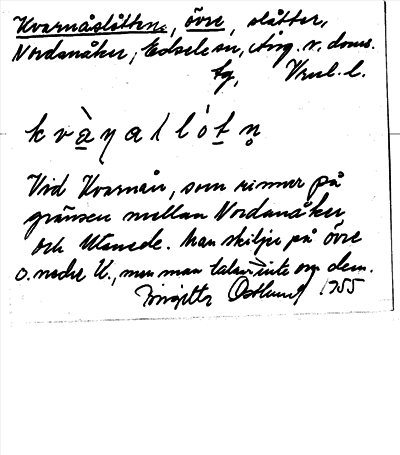 Kvarnåslåtten, övre, slåtter,
Nordanåker, Edsele sn, Ång. v. doms.
tg, Vnrl. l.
k v à ṇ a l l ó t ṇ
Vid Kvarnån, som rinner på
gränsen mellan Nordanåker
och Utanede. Man skiljer på övre
o. nedre K., men man talar inte om dem.
Birgitta Östlund 1955